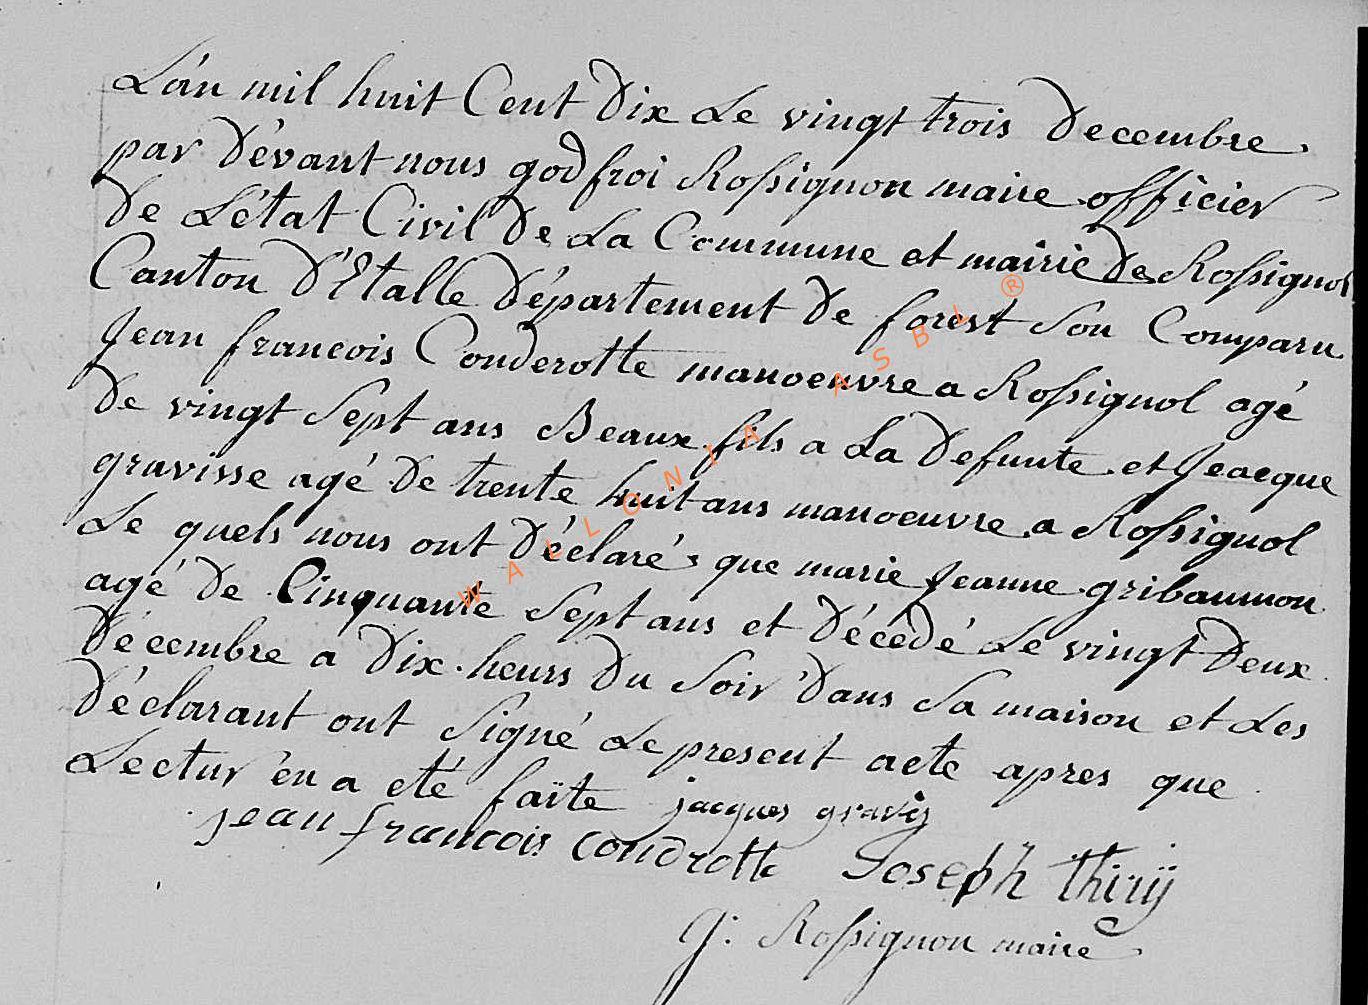 L'an mil huit Cent Dix Le vingt trois Decembre
par Dévant nous godfroi Rossignon maire officier
De L'état Civil De La Commune et mairie De Rossignol
Canton D'Etalle Département De forest Son Comparu
Jean francois Conderotte manoeuvre a Rossignol agé
De vingt Sept ans Beaux fils a La Defunte et Jeacque
gravisse agé De trente huit ans manoeuvre a Rossignol
Le quels nous ont Déclaré que marie Jeanne gribaumon
agé De Cinquante Sept ans et Décedé Le vingt Deux
Décembre a Dix heurs Du Soir Dans Sa maison et Les
Déclarant ont Signé Le present acte apres que
Lectur en a eté faite jacques gravis
jean francois condrotte Joseph thirÿ
g: Rossignon maire
WALLONIA ASBL ®